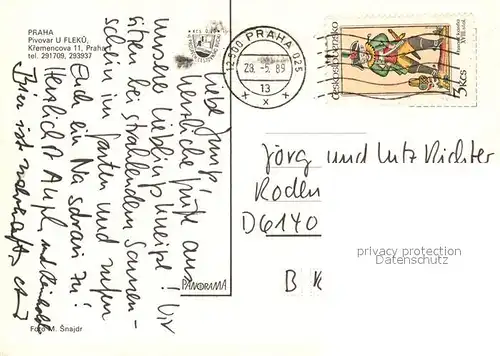 PRAHA
Pivovar U FLEKŮ,
Křemencova 11, Praha 1
tel. 291709, 293937
Kčs
12500 PRAHA 025
28. -5. 89
13
+ x +
Československo
3 Kčs
Liebe Jungs,
herzliche Grüße aus
unserer Lieblingskneipe! Wir
sitzen bei strahlendem Sonnen-
schein im Garten und rufen
Euch ein Na sdravi zu!
Herzlichst
Bier ist
Jörg und Lutz Richter
Roden
D6140
B K
privacy protection
Datenschutz
PANORAMA
Foto M. Šnajdr